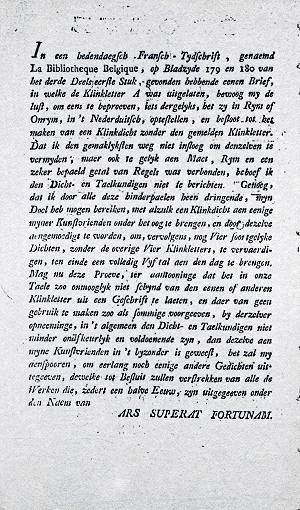 In een hedendaegsch Fransch-Tydschrift, genaemd
La Bibliotheque Belgique, op Bladzyde 179 en 180 van
het derde Deels eerste Stuk, gevonden hebbende eenen Brief,
in welke de Klinkletter A was uitgelaten, bewoog my de
lust, om eens te beproeven, iets dergelyks, het zy in Rym of
Onrym, in 't Nederduitsch, optestellen, en besloot tot het
maken van een Klinkdicht zonder den gemelden Klinkletter.
Dat ik den gemaklyksten weg niet insloeg om denzelven te
vermyden; maer ook te gelyk aen Maet, Rym en een
zeker bepaeld getal van Regels was verbonden, behoef ik
den Dicht- en Taelkundigen niet te berichten. Genoeg,
dat ik door alle deze hinderpaelen heen dringende, myn
Doel heb mogen bereiken, met alzulk een Klinkdicht aen eenige
myner Kunstvrienden onder het oog te brengen, en door dezelve
aengemoedigt te worden, om, vervolgens, nog Vier soortgelyke
Dichten, zonder de overige Vier Klinkletters, te vervaerdi-
gen, ten einde een volledig Vyftal aen den dag te brengen.
Mag nu deze Proeve, ter aantooninge dat het in onze
Taele zoo onmooglyk niet schynd van den eenen of anderen
Klinkletter uit een Geschrift te laeten, en daer van geen
gebruik te maken zoo als sommige voorgeeven, by derzelver
opneeminge, in 't algemeen den Dicht- en Taelkundigen niet
minder onäfkeurlyk en voldoenende zyn, dan dezelve aen
myne Kunstvrienden in 't byzonder is geweest, het zal my
aenspooren, om eerlang noch eenige andere Gedichten uit-
tegeeven, dewelke tot Besluit zullen verstrekken van alle de
Werken die, zedert een halve Eeuw, zyn uitgegeven onder
den Naem van
ARS SUPERAT FORTUNAM.